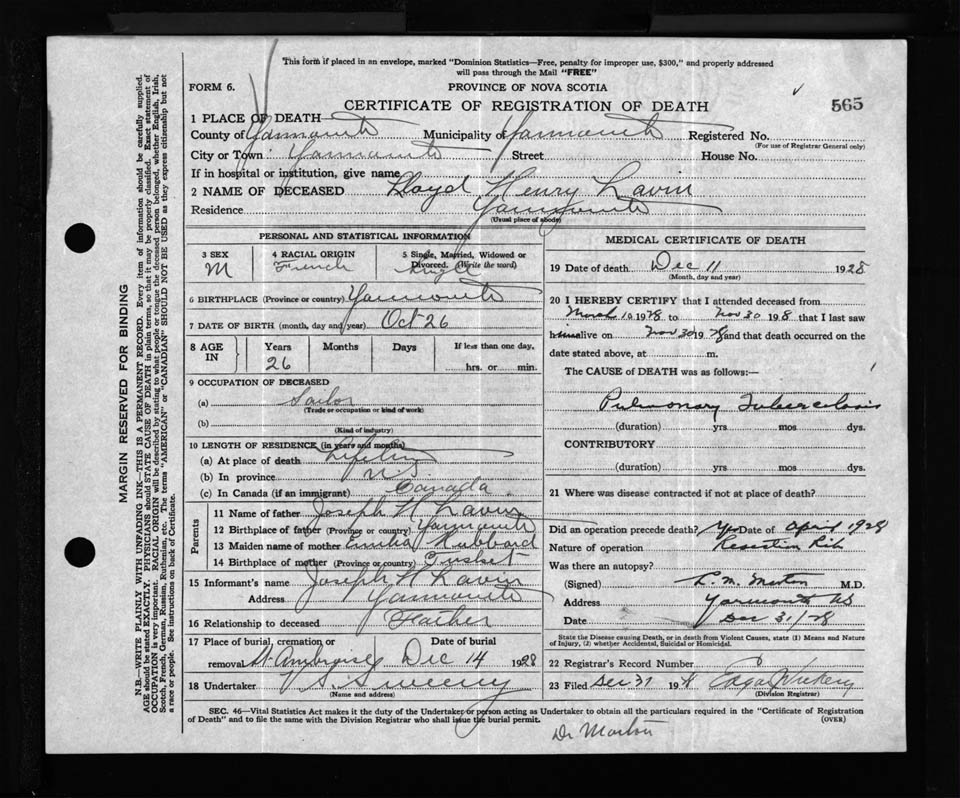 This form if placed in an envelope, marked "Dominion Statistics—Free, penalty for improper use, $300," and properly addressed
will pass through the Mail "FREE"
FORM 6.
PROVINCE OF NOVA SCOTIA
565
CERTIFICATE OF REGISTRATION OF DEATH
1 PLACE OF DEATH—
County of Yarmouth Municipality of Yarmouth Registered No.
(For use of Registrar General only)
City or Town Yarmouth Street House No.
If in hospital or institution, give name
2 NAME OF DECEASED Lloyd Henry Lavin
Residence Yarmouth
(Usual place of abode)
PERSONAL AND STATISTICAL INFORMATION
3 SEX 4 RACIAL ORIGIN 5 Single, Married, Widowed or
Divorced. (Write the word)
M French Single
6 BIRTHPLACE (Province or country) Yarmouth
7 DATE OF BIRTH (month, day and year) Oct 26
8 AGE IN Years Months Days If less than one day,
26 hrs. or min.
9 OCCUPATION OF DECEASED
(a) Sailor
(Trade or occupation or kind of work)
(b)
(Kind of industry)
10 LENGTH OF RESIDENCE (in years and months)
(a) At place of death Lifetime
(b) In province N.S.
(c) In Canada (if an immigrant) Canada
Parents
11 Name of father Joseph N Lavin
12 Birthplace of father (Province or country) Yarmouth
13 Maiden name of mother Emilia Hubbard
14 Birthplace of mother (Province or country) Tusket
15 Informant's name Joseph N Lavin
Address Yarmouth
16 Relationship to deceased Father
17 Place of burial, cremation or Date of burial
removal St Ambroise Dec 14 1928
18 Undertaker V S Sweeny
(Name and address)
MEDICAL CERTIFICATE OF DEATH
19 Date of death Dec 11 1928
(Month, day and year)
20 I HEREBY CERTIFY that I attended deceased from
March 10 1928 to Nov 30 1928 that I last saw
him alive on Nov 30 1928 and that death occurred on the
date stated above, at m.
The CAUSE of DEATH was as follows:—
Pulmonary Tuberculosis
(duration) yrs mos dys.
CONTRIBUTORY
(duration) yrs. mos. dys.
21 Where was disease contracted if not at place of death?
Did an operation precede death? Yes Date of April 1928
Nature of operation Resection Rib
Was there an autopsy?
(Signed) L. M. Morton M.D.
Address Yarmouth NS
Date Dec 31/28
State the Disease causing Death, or in Death from Violent Causes, state (1) Means and Nature
of Injury, (2) whether Accidental, Suicidal or Homicidal.
22 Registrar's Record Number
23 Filed Dec 31 1928
(Division Registrar)
SEC. 46—Vital Statistics Act makes it the duty of the Undertaker or person acting as Undertaker to obtain all the particulars required in the "Certificate of Registration
of Death" and to file the same with the Division Registrar who shall issue the burial permit.
(OVER)
Dr Morton
MARGIN RESERVED FOR BINDING
N.B.—WRITE PLAINLY WITH UNFADING INK—THIS IS A PERMANENT RECORD. Every item of information should be carefully supplied.
AGE should be stated EXACTLY. PHYSICIANS should STATE CAUSE OF DEATH in plain terms, so that it may be properly classified. Exact statement of
OCCUPATION is very important. RACIAL ORIGIN will be described by stating to what people or tongue the deceased person belonged, whether English, Irish,
Scotch, French, German, Russian, Ruthenian, etc. The terms "AMERICAN" or "CANADIAN" SHOULD NOT BE USED as they express citizenship but not
a race or people. See instructions on back of Certificate.